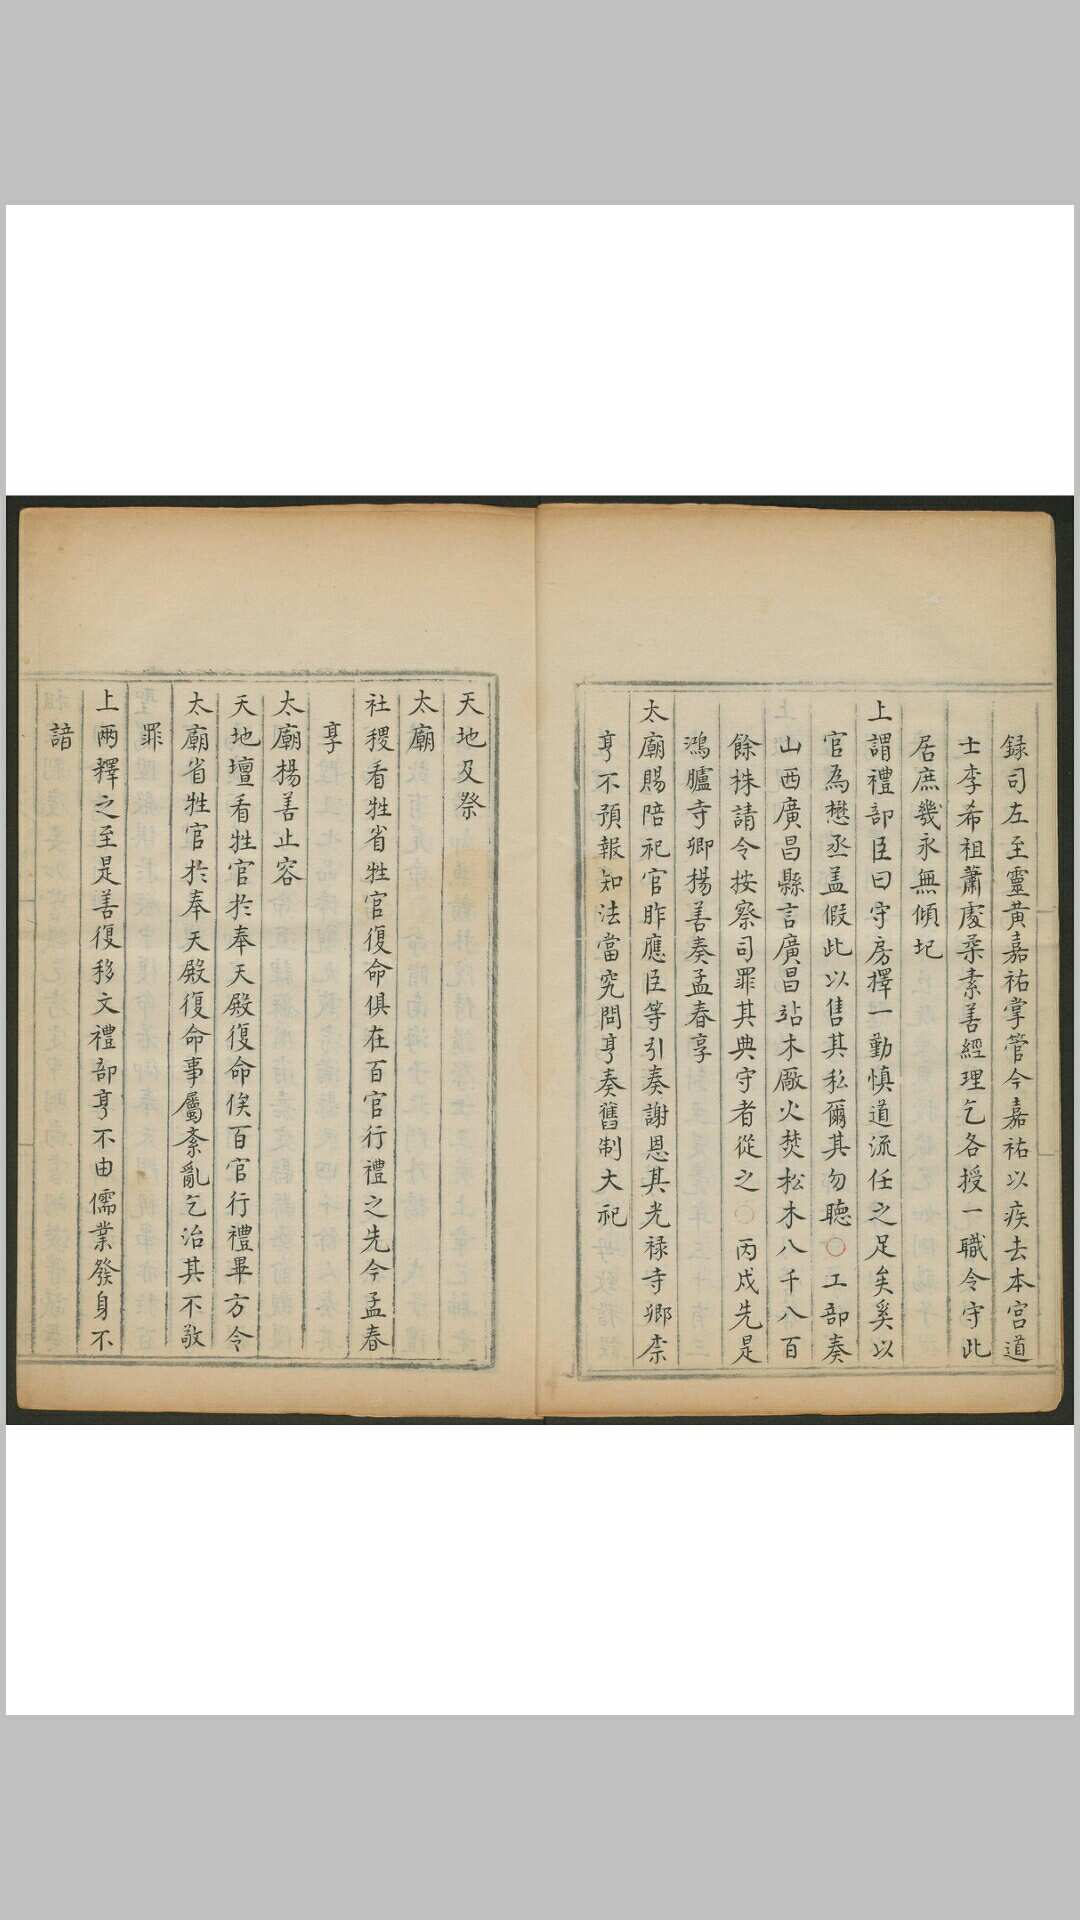 録司左至靈黄嘉祐掌管今嘉祐以疾去本宫道
士李希祖蕭處柔素善經理乞各授一職令守此
居庶幾永無傾圯
上謂禮部臣曰守房擇一勤慎道流任之足矣奚以
官為懋丞盖假此以售其私爾其勿聽○工部奏
山西廣昌縣言廣昌站木厰火焚松木八千八百
餘株請令按察司罪其典守者從之○丙戍先是
鴻臚寺卿楊善奏孟春享
太廟賜陪祀官胙應臣等引奏謝恩其光禄寺卿柰
亨不預報知法當究問亨奏舊制大祀
天地及祭
太廟
社稷看牲省牲官復命俱在百官行禮之先今孟春
享
太廟楊善止容
天地壇看牲官於奉天殿復命俟百官行禮畢方令
太廟省牲官於奉天殿復命事屬紊亂乞治其不敬
罪
上兩釋之至是善復移文禮部亨不由儒業發身不
諳